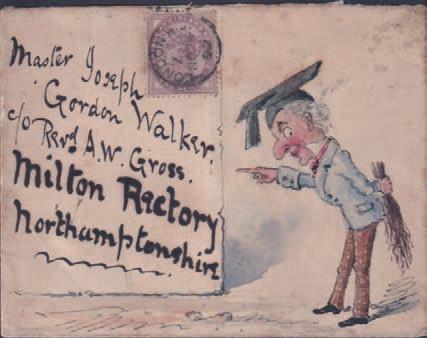 Master Joseph
Gordon Walker.
c/o Revd A.W. Gross.
Milton Rectory
Northamptonshire
LONDON